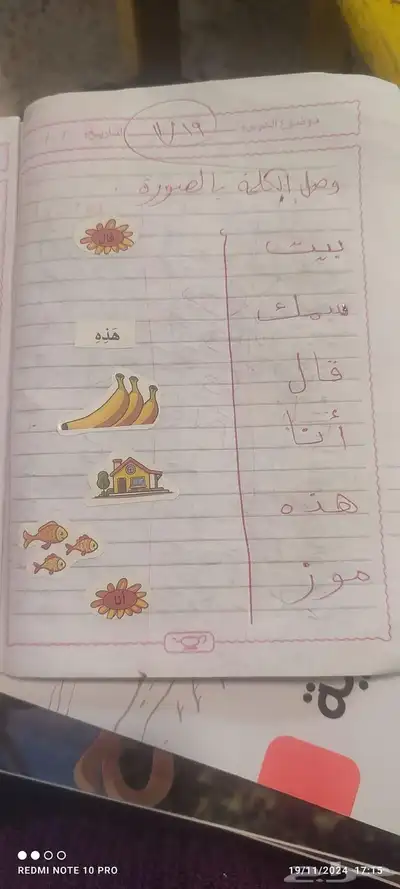 موضوع الدرس
١١/١٩
التاريخ: / /
وصل الكلمة بالصورة .
بيت
سمك
قال
أنا
هذه
موز
قال
هَذِهِ
أنا
ية
REDMI NOTE 10 PRO
19/11/2024 17:15